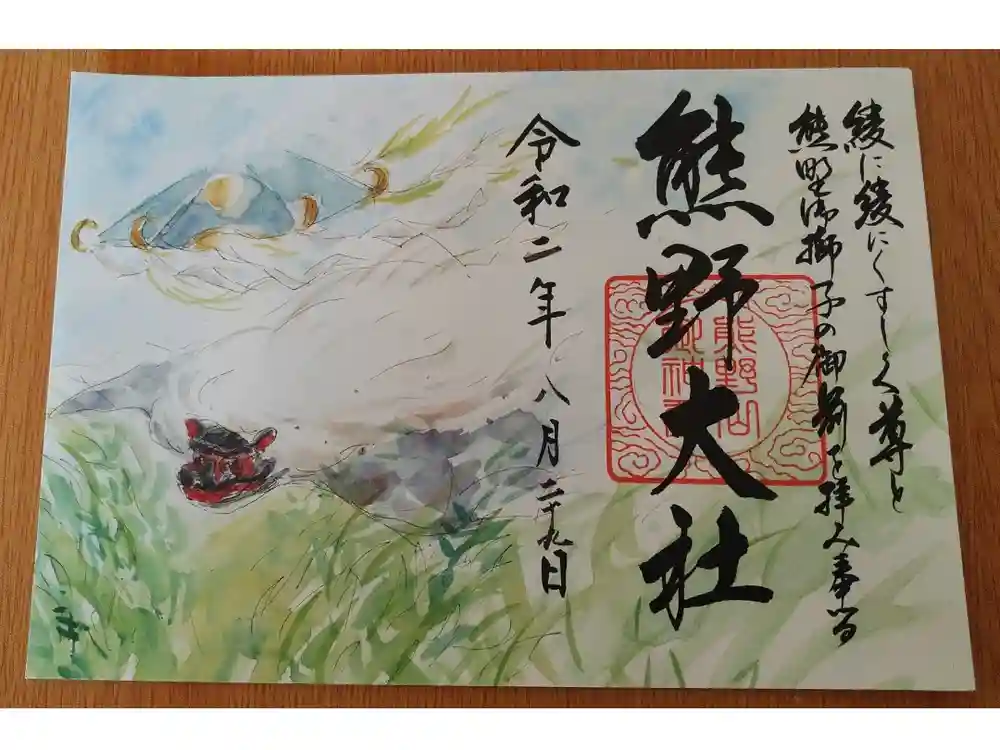 綾に綾にくすしく尊と
熊野御獅子の御前を拝み奉る
熊野大社
令和二年八月二十九日
熊野山